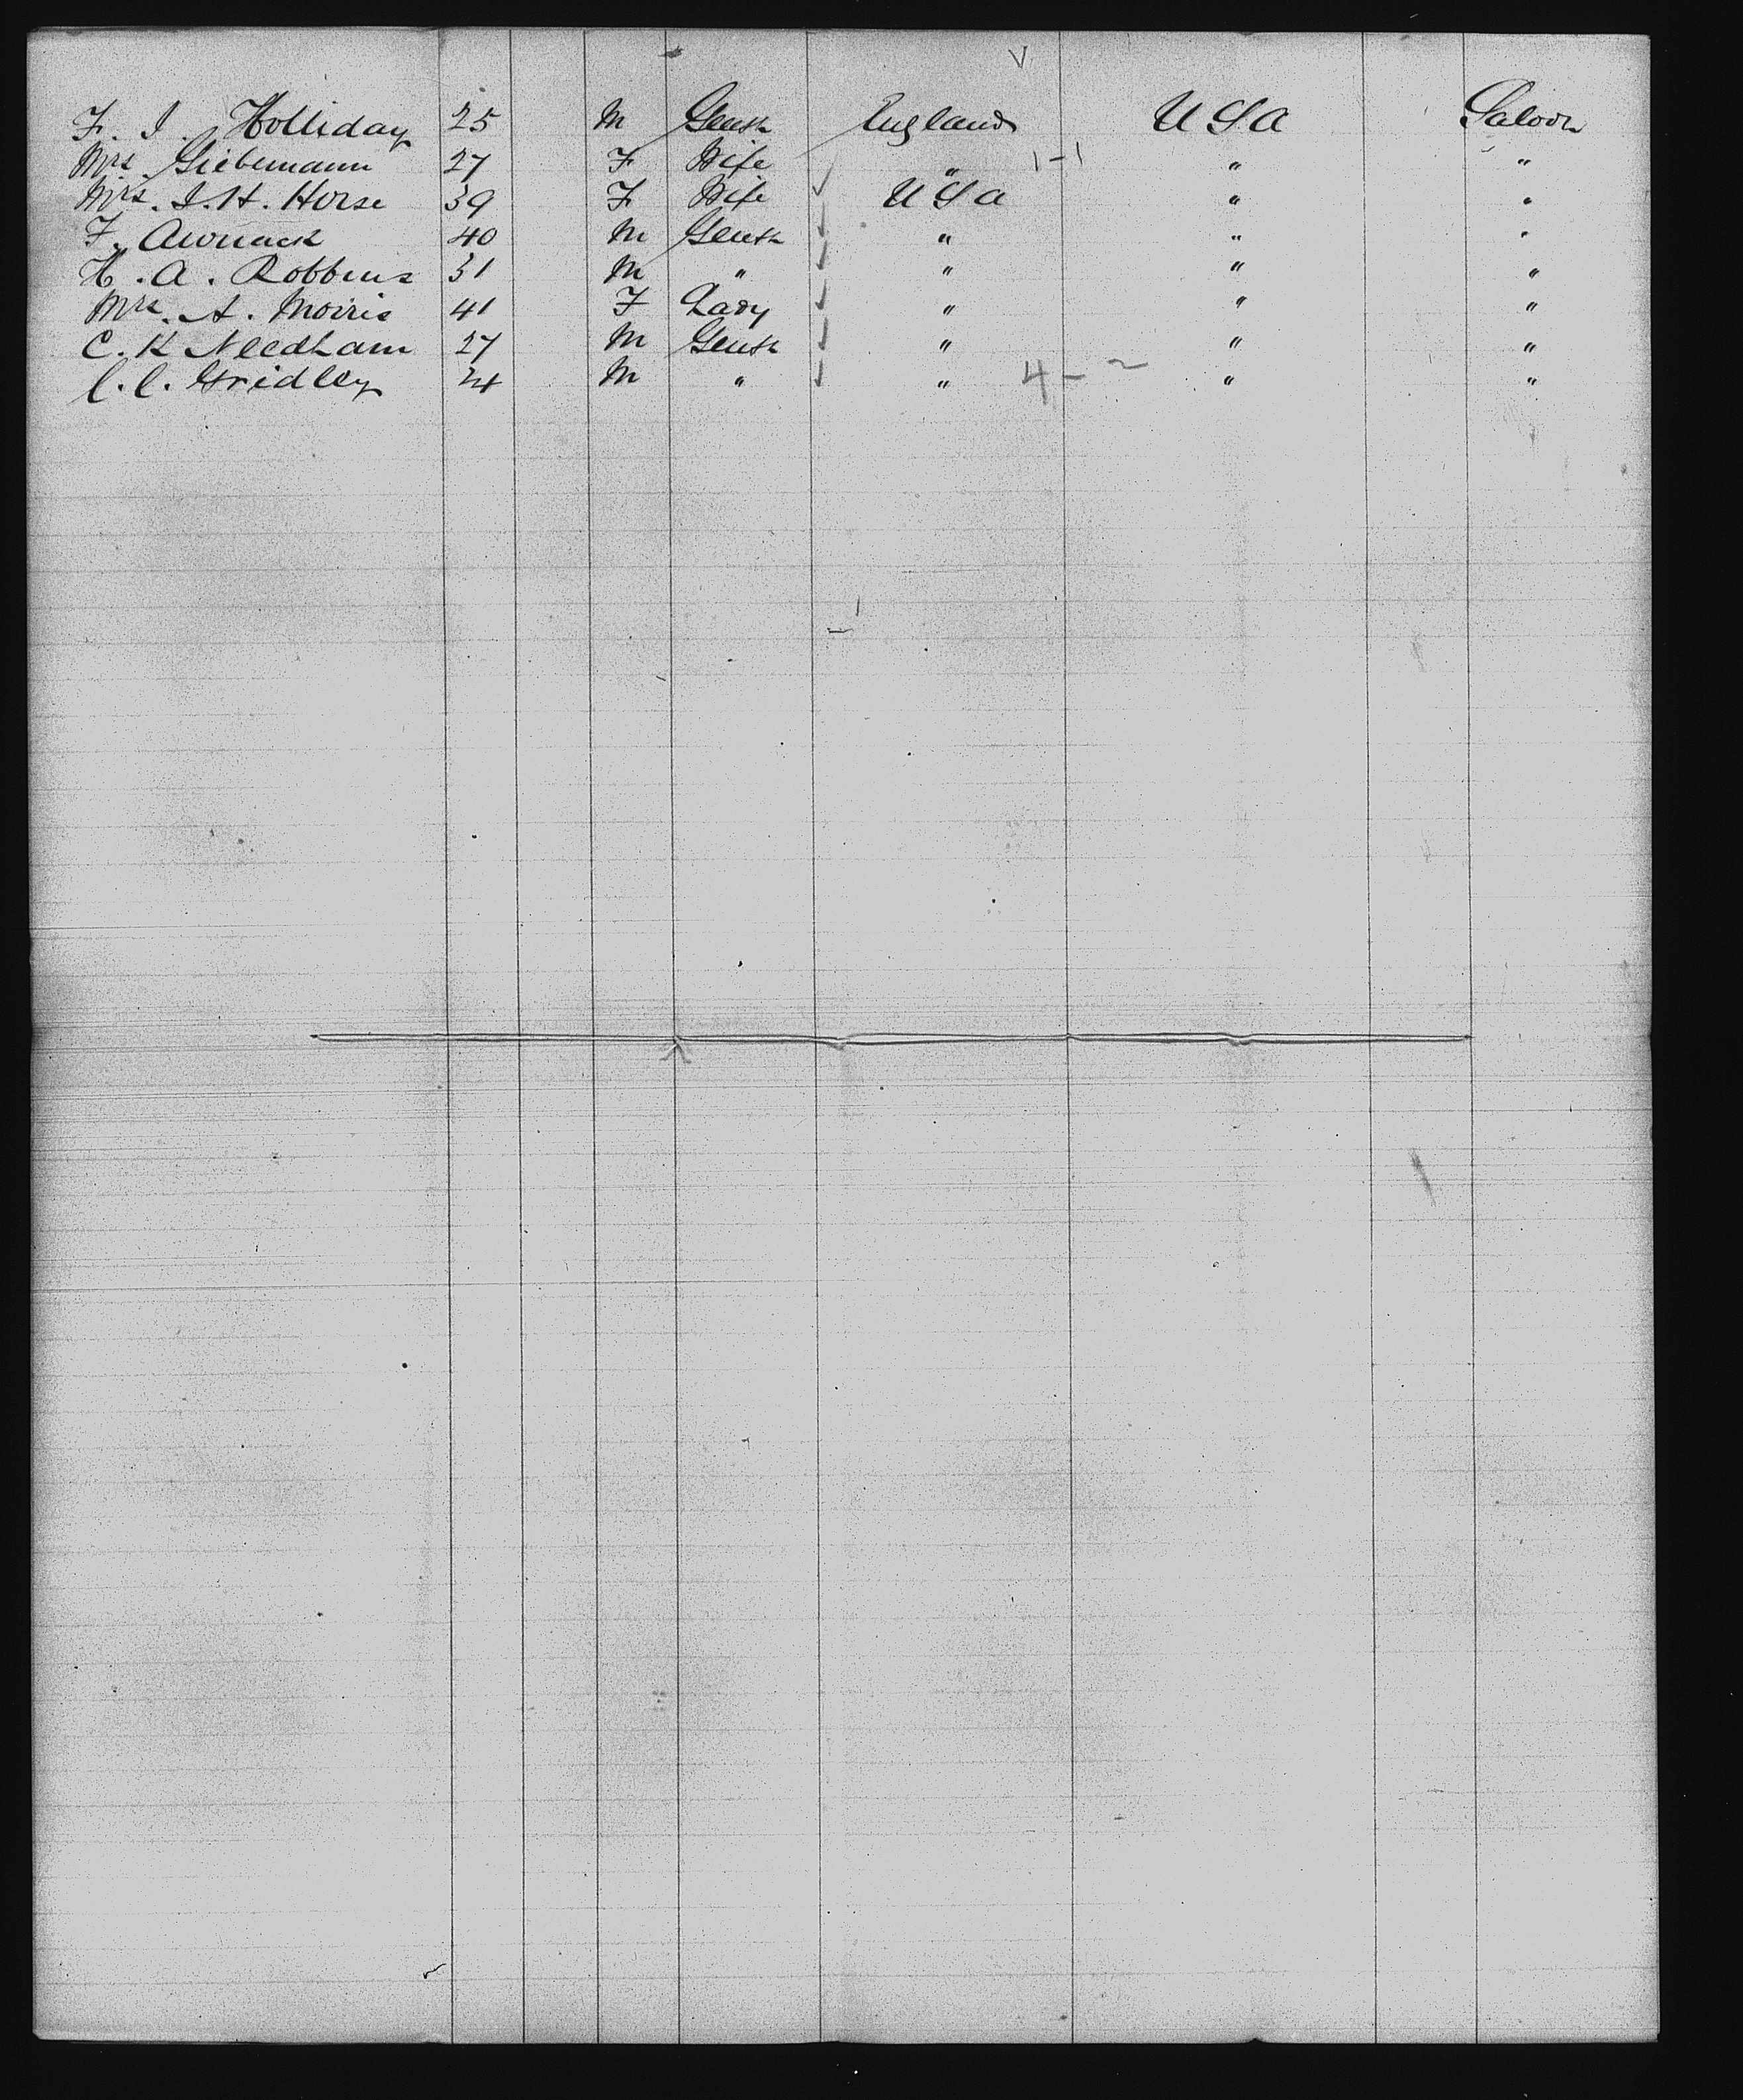 F. J. Holliday 25 M Gentn England USA Saloon
Mrs. Siebemann 27 F Wife " 1-1 " "
Mrs. J. H. Horse 39 F Wife USA " "
F. 40 M Gentn " " "
H. A. Robbins 31 M " " " "
Mrs. A. Morris 41 F Lady " " "
C. K Needham 27 M Gentn " " "
C. C. Gridley 24 M " " 4-2 " "